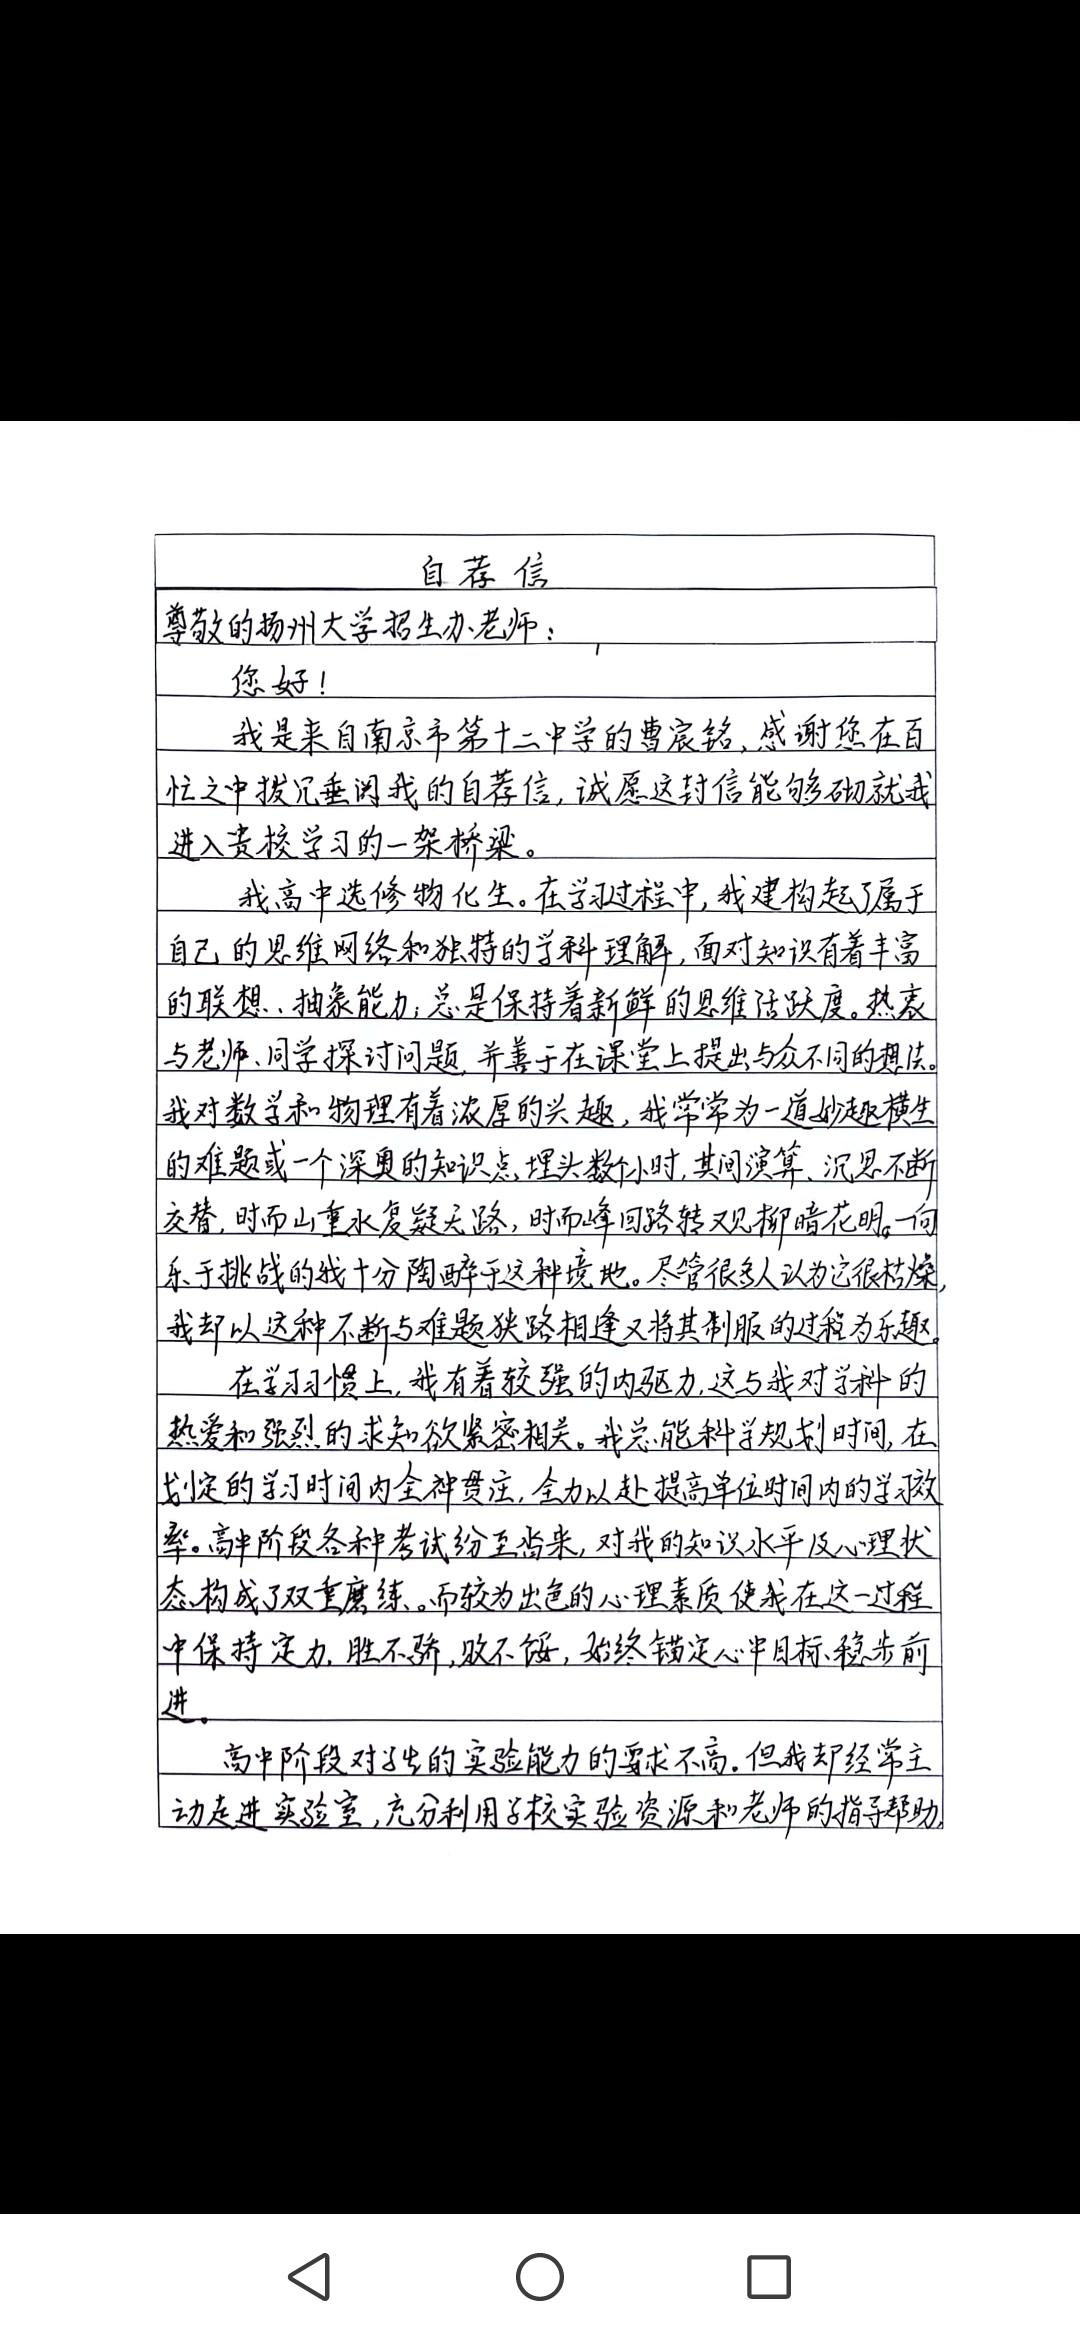 自荐信
尊敬的扬州大学招生办老师：
您好！
我是来自南京市第十二中学的曹宸铭，感谢您在百
忙之中拨冗垂阅我的自荐信，诚愿这封信能够砌就我
进入贵校学习的一架桥梁。
我高中选修物化生。在学习过程中，我建构起了属于
自己的思维网络和独特的学科理解，面对知识有着丰富
的联想、抽象能力；总是保持着新鲜的思维活跃度。热衷
与老师、同学探讨问题，并善于在课堂上提出与众不同的想法。
我对数学和物理有着浓厚的兴趣，我常常为一道妙趣横生
的难题或一个深奥的知识点埋头数个小时，其间演算、沉思不断
交替，时而山重水复疑无路，时而峰回路转又见柳暗花明。一向
乐于挑战的我十分陶醉于这种境地。尽管很多人认为它很枯燥，
我却以这种不断与难题狭路相逢又将其制服的过程为乐趣。
在学习习惯上，我有着较强的内驱力，这与我对学科的
热爱和强烈的求知欲紧密相关。我总能科学规划时间，在
划定的学习时间内全神贯注，全力以赴提高单位时间内的学习效
率。高中阶段各种考试纷至沓来，对我的知识水平及心理状
态构成了双重磨练。而较为出色的心理素质使我在这一过程
中保持定力，胜不骄，败不馁，始终锚定心中目标、稳步前
进。
高中阶段对学生的实验能力的要求不高。但我却经常主
动走进实验室，充分利用学校实验资源和老师的指导帮助，